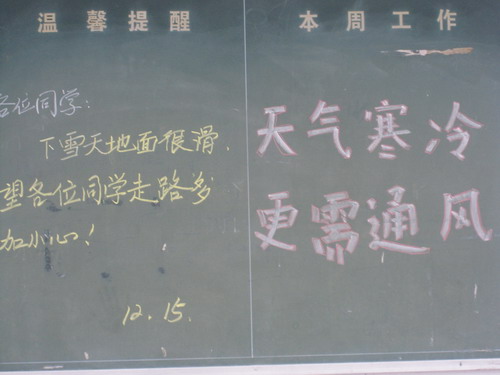 温馨提醒
各位同学:
下雪天地面很滑,
望各位同学走路多
加小心!
12.15.
本周工作
天气寒冷
更需通风